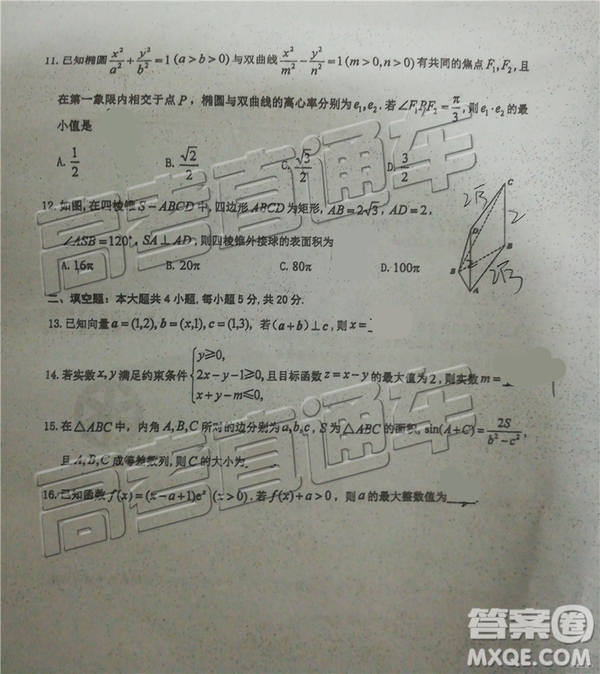 11. 已知椭圆 x²/a² + y²/b² = 1 (a > b > 0) 与双曲线 x²/m² - y²/n² = 1 (m > 0, n > 0) 有共同的焦点 F₁, F₂, 且
在第一象限内相交于点 P，椭圆与双曲线的离心率分别为 e₁, e₂. 若 ∠F₁PF₂ = π/3, 则 e₁·e₂ 的最
小值是
A. 1/2 B. √2/2 C. √3/2 D. 3/2
12. 如图, 在四棱锥 S-ABCD 中, 四边形 ABCD 为矩形, AB = 2√3, AD = 2,
∠ASB = 120°, SA ⊥ AD, 则四棱锥外接球的表面积为
A. 16π B. 20π C. 80π D. 100π
C
2√3
2
D
B
S
2√3
A
二、填空题: 本大题共 4 小题, 每小题 5 分, 共 20 分.
13. 已知向量 a = (1,2), b = (x,1), c = (1,3), 若 (a+b) ⊥ c, 则 x =
14. 若实数 x, y 满足约束条件 { y ≥ 0, 2x - y - 1 ≥ 0, x + y - m ≤ 0, 且目标函数 z = x - y 的最大值为 2, 则实数 m =
15. 在 △ABC 中, 内角 A, B, C 所对的边分别为 a, b, c, S 为 △ABC 的面积, sin(A+C) = 2S/(b² - c²),
且 A, B, C 成等差数列, 则 C 的大小为
16. 已知函数 f(x) = (x - a + 1)eˣ (x > 0). 若 f(x) + a > 0, 则 a 的最大整数值为
高考直通车
高考直通车
高考直通车
答案圈
MXQE.COM